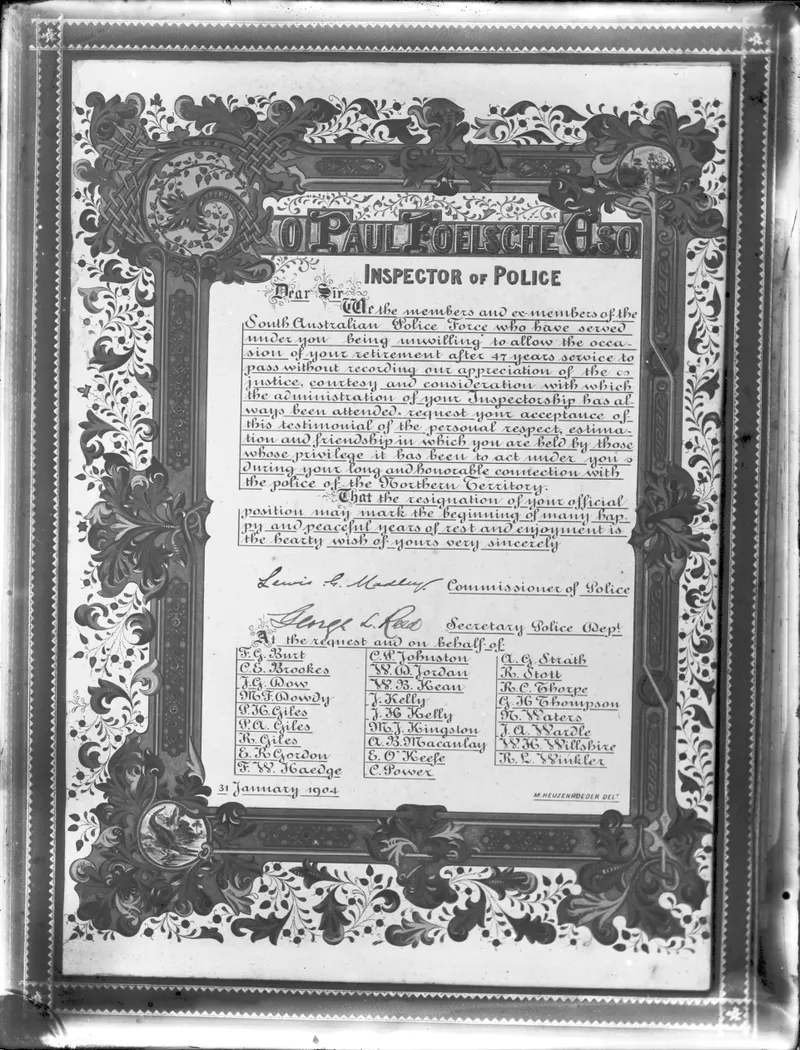 TO PAUL FOELSCHE ESQ
INSPECTOR OF POLICE
Dear Sir
We the members and ex-members of the
South Australian Police Force who have served
under you being unwilling to allow the occa-
sion of your retirement after 47 years service to
pass without recording our appreciation of the
justice, courtesy and consideration with which
the administration of your Inspectorship has al-
ways been attended. request your acceptance of
this testimonial of the personal respect, estima-
tion and friendship in which you are held by those
whose privilege it has been to act under you
during your long and honorable connection with
the police of the Northern Territory.
That the resignation of your official
position may mark the beginning of many hap-
py and peaceful years of rest and enjoyment is
the hearty wish of yours very sincerely
Lewis G. Madley. Commissioner of Police
George L. Reed Secretary Police Dept
At the request and on behalf of
F. G. Burt
C. E. Brookes
J. G. Dow
M. F. Dowdy
P. H. Giles
P. A. Giles
R. Giles
E. R. Gordon
F. W. Haedge
C. P. Johnston
W. D. Jordan
W. B. Kean
J. Kelly
J. H. Kelly
M. J. Kingston
A. B. Macaulay
E. O'Keefe
C. Power
A. G. Strath
R. Stott
R. C. Thorpe
G. H. Thompson
N. Waters
J. A. Wardle
W. H. Willshire
R. L. Winkler
31 January 1904
M. HEUZENROEDER DELT